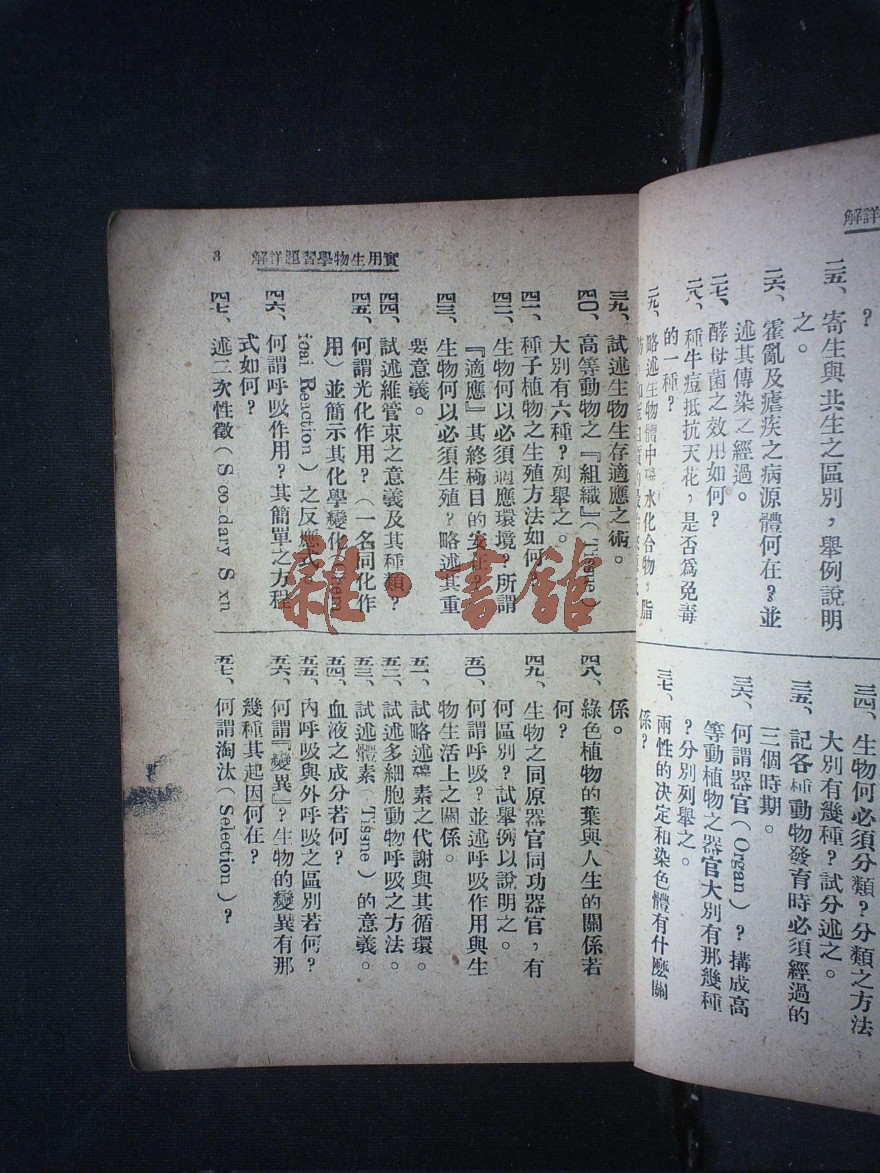 詳解
？
二五、寄生與共生之區別，舉例說明
之。
二六、霍亂及瘧疾之病源體何在？並
述其傳染之經過。
二七、酵母菌之效用如何？
二八、種牛痘抵抗天花，是否爲免毒
的一種？
二九、略述生物體中碳水化合物，脂
三四、生物何必須分類？分類之方法
大別有幾種？試分述之。
三五、記各種動物發育時必須經過的
三個時期。
三六、何謂器官（Organ）？搆成高
等動植物之器官大別有那幾種
？分別列舉之。
三七、兩性的決定和染色體有什麽關
係？
實用生物學習題詳解
3
三九、試述生物生存適應之術。
四〇、高等動物之『組織』（Tissue）
大別有六種？列舉之。
四一、種子植物之生殖方法如何？
四二、生物何以必須適應環境？所謂
『適應』其終極目的安在？
四三、生物何以必須生殖？略述其重
要意義。
四四、試述維管束之意義及其種類？
四五、何謂光化作用？（一名同化作
用）並簡示其化學變化（Chem
ical Reaction）之反應式
四六、何謂呼吸作用？其簡單之方程
式如何？
四七、述二次性徵（Secondary Sexu
係。
四八、綠色植物的葉與人生的關係若
何？
四九、生物之同原器官同功器官，有
何區別？試舉例以說明之。
五〇、何謂呼吸？並述呼吸作用與生
物生活上之關係。
五一、試略述 素之代謝與其循環。
五二、試述多細胞動物呼吸之方法。
五三、試述體素（Tissne）的意義。
五四、血液之成分若何？
五五、內呼吸與外呼吸之區別若何？
五六、何謂『變異』？生物的變異有那
幾種其起因何在？
五七、何謂淘汰（Selection）？
雜·書舘